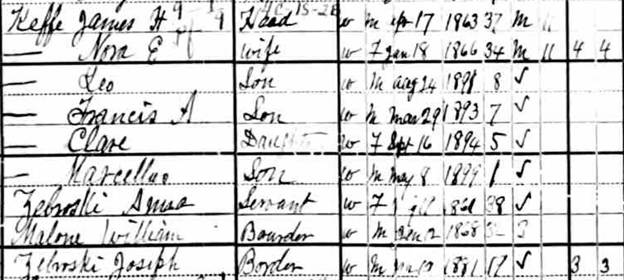 Keffe James H Head W M Apr 17 1863 37 M 11
— Nora E Wife W F Jan 18 1866 34 M 11 4 4
— Leo Son W M Aug 24 1891 8 S
— Francis A Son W M Mar 29 1893 7 S
— Clare Daughter W F Sept 16 1894 5 S
— Marcellus Son W M May 8 1899 1 S
Zebroski Servant W F 1861 38 S
Malone William Bourder W M 12 1868 S
Zebroski Joseph Border W M 1881 S 3 3